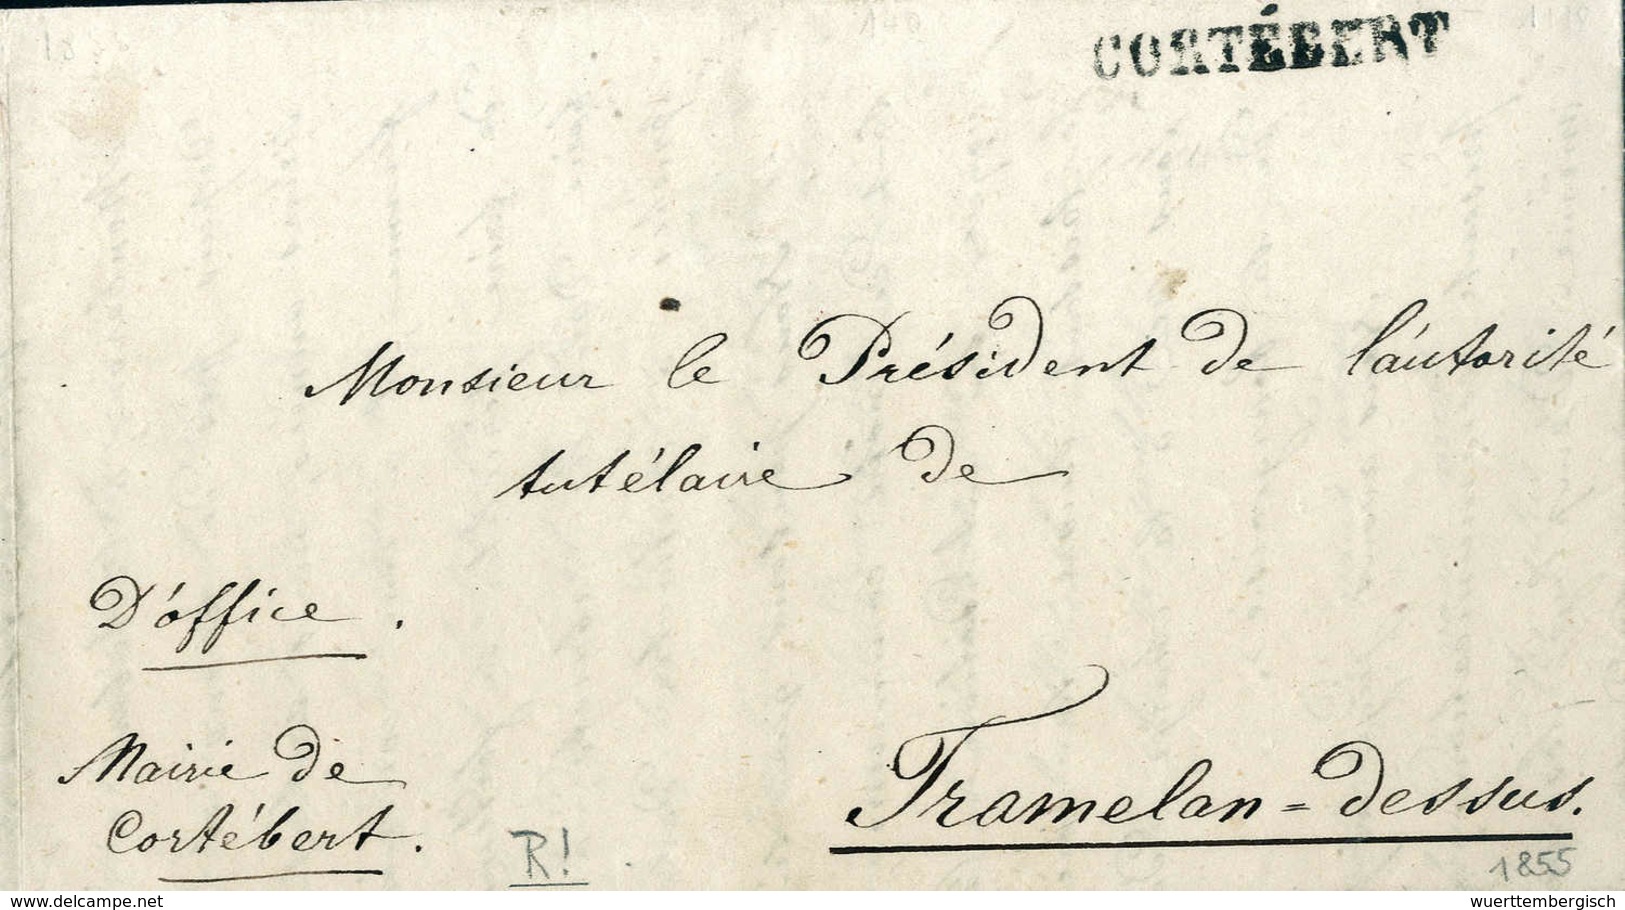 CORTÉBERT
Monsieur le Président de l'autorité
tutélaire de
D'office.
Mairie de
Cortébert.
Tramelan=dessus.
R!
1855
next auction
wuerttembergisch